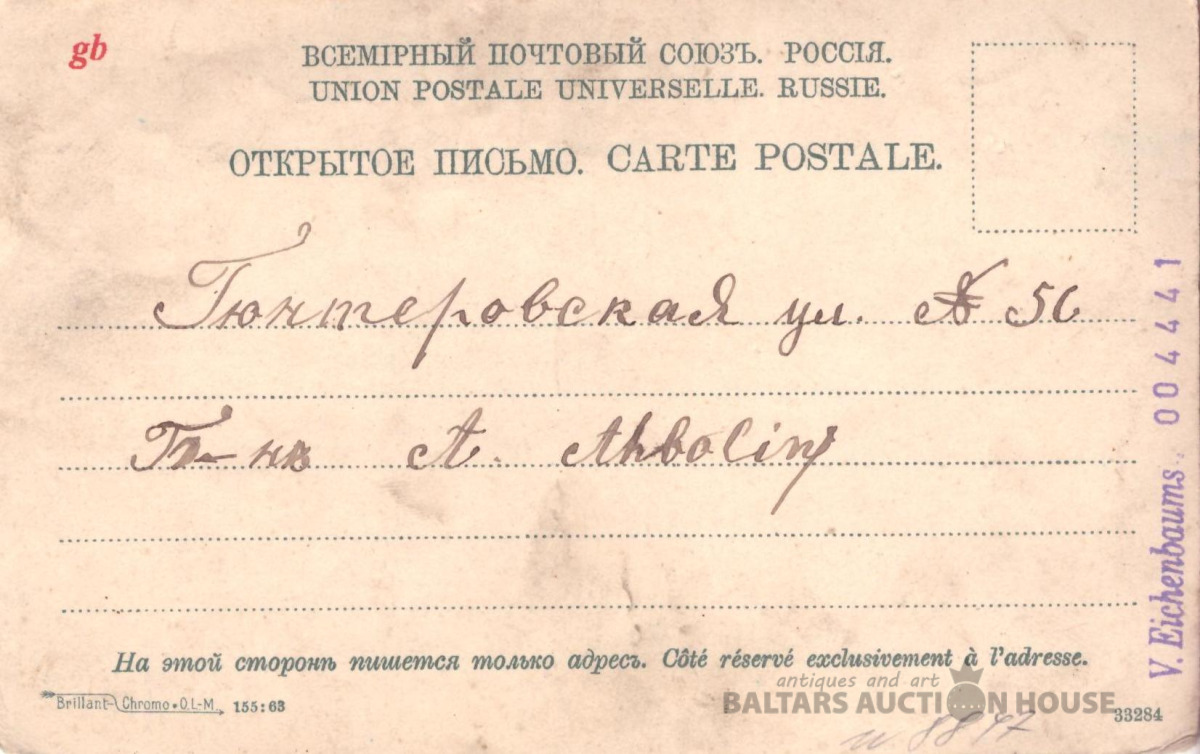 gb
ВСЕМІРНЫЙ ПОЧТОВЫЙ СОЮЗЪ. РОССІЯ.
UNION POSTALE UNIVERSELLE. RUSSIE.
ОТКРЫТОЕ ПИСЬМО. CARTE POSTALE.
Гюнтеровская ул. № 56
A. Ahboling
На этой сторонѣ пишется только адресъ. Côté réservé exclusivement à l'adresse.
Brillant-Chromo•O.L-M. 155:63
antiques and art
BALTARS AUCTION HOUSE
33284
8847
V. Eichenbaums. 004441